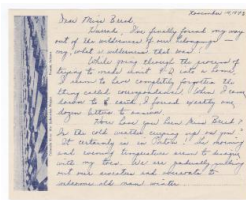 November
Dear Miss Bird
Hurrah, I've finally found my way
out of the wilderness of our
my, what a wilderness that was!
While going through the process of
trying to make short I into a home,
I seem to have completely forgotten the
thing called correspondence. When I came
down to earth, I found exactly one
dozen letters to answer.
How have you been Miss Bird?
Is the cold weather creeping up on you?
It certainly is in The
morning and evening temperature seems to
with my toes. We are gradually pulling
out our sweaters and overcoats to
welcome old man winter.